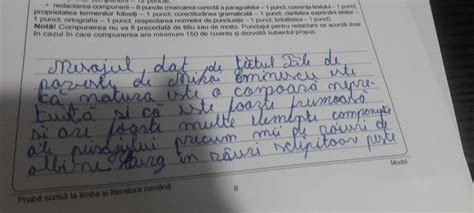 • redactarea compunerii – 8 puncte (marcarea corectă a paragrafelor – 1 punct; coerența textului – 1 punct;
proprietatea termenilor folosiți – 1 punct; corectitudinea gramaticală – 1 punct; claritatea exprimării ideilor –
1 punct; ortografia – 1 punct; respectarea normelor de punctuație – 1 punct; lizibilitatea – 1 punct).
Notă! Compunerea nu va fi precedată de titlu sau de motto. Punctajul pentru redactare se acordă doar
în cazul în care compunerea are minimum 150 de cuvinte și dezvoltă subiectul propus.
Mesajul dat de textul Zile de
poveste de Mihai Eminescu este
că natura este o comoară nepre-
țuită și că este foarte frumoasă
și are foarte multe elemente componente
ale peisajului precum mii de roiuri de
albine curg în râuri sclipitoare peste
Probă scrisă la limba și literatura română
8
Model